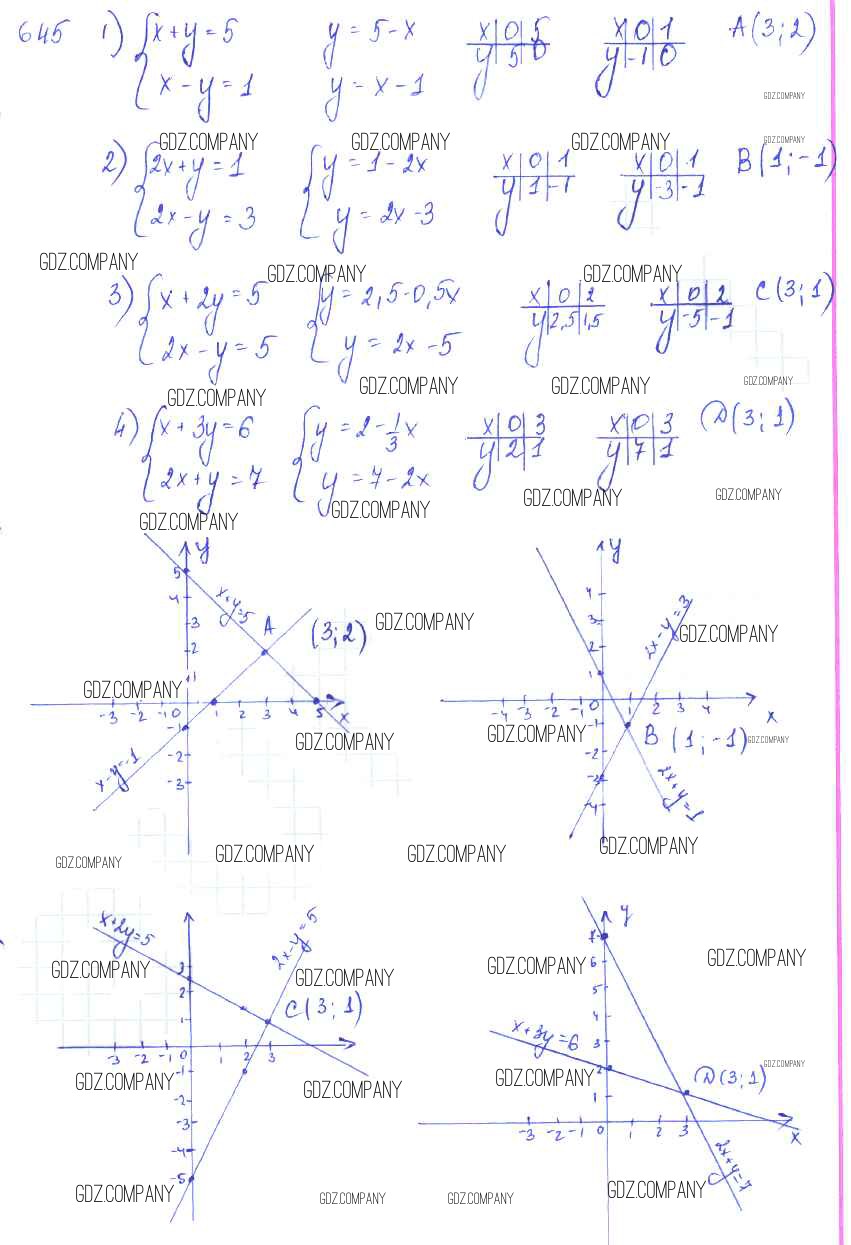 645 1) x+y=5 y=5-x x 0 5 x 0 1 A(3;2)
x-y=1 y=x-1 y 5 0 y -1 0
GDZ.COMPANY
GDZ.COMPANY GDZ.COMPANY GDZ.COMPANY GDZ.COMPANY
2) 2x+y=1 y=1-2x x 0 1 x 0 1 B(1;-1)
2x-y=3 y=2x-3 y 1 -1 y -3 -1
GDZ.COMPANY GDZ.COMPANY GDZ.COMPANY
3) x+2y=5 y=2,5-0,5x x 0 2 x 0 2 C(3;1)
2x-y=5 y=2x-5 y 2,5 1,5 y -5 -1
GDZ.COMPANY GDZ.COMPANY GDZ.COMPANY GDZ.COMPANY
4) x+3y=6 y=2-1/3x x 0 3 x 0 3 D(3;1)
2x+y=7 y=7-2x y 2 1 y 7 1
GDZ.COMPANY GDZ.COMPANY GDZ.COMPANY GDZ.COMPANY
y
5
4
3
2
1
x+y=5
A
(3;2)
GDZ.COMPANY
GDZ.COMPANY
-3 -2 -1 0 1 2 3 4 5 x
-1
-2
-3
x-y=1
GDZ.COMPANY
y
4
3
2
1
2x-y=3
GDZ.COMPANY
-4 -3 -2 -1 0 1 2 3 4 x
-1
-2
-3
-4
GDZ.COMPANY
B (1;-1)
GDZ.COMPANY
2x+y=1
GDZ.COMPANY GDZ.COMPANY GDZ.COMPANY GDZ.COMPANY
x+2y=5
2x-y=5
GDZ.COMPANY GDZ.COMPANY
3
2
1
C(3;1)
-3 -2 -1 0 1 2 3
-1
-2
-3
-4
-5
GDZ.COMPANY GDZ.COMPANY
GDZ.COMPANY
y
7
6
5
4
3
2
1
GDZ.COMPANY GDZ.COMPANY
x+3y=6
GDZ.COMPANY
GDZ.COMPANY
D(3;1)
-3 -2 -1 0 1 2 3 x
2x+y=7
GDZ.COMPANY GDZ.COMPANY GDZ.COMPANY